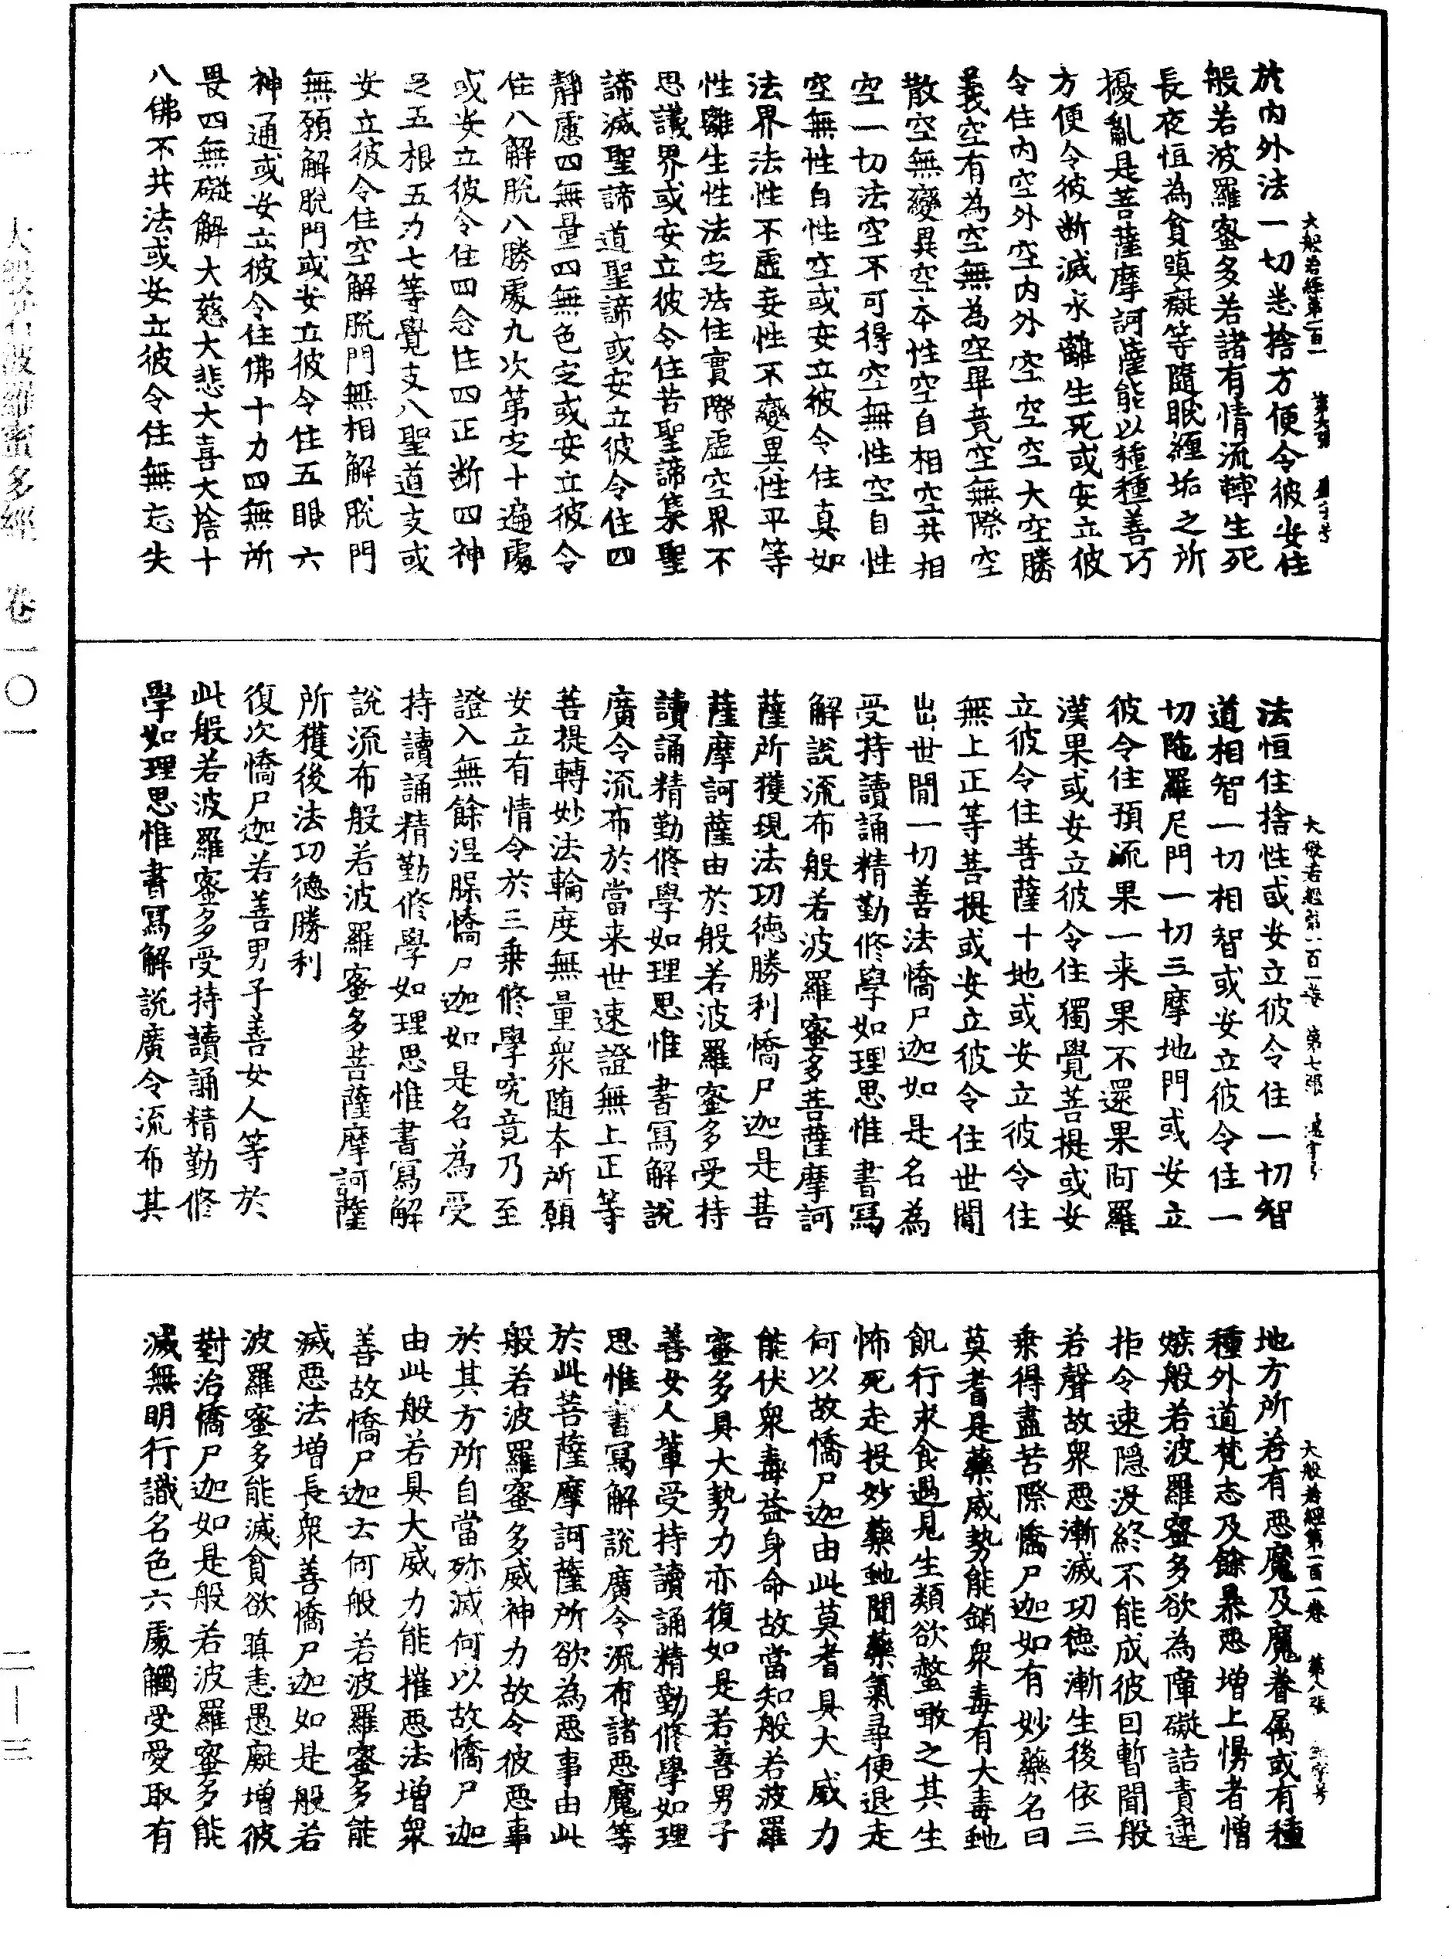 大般若波羅蜜多經　卷一〇一
二—三
於内外法一切悉捨方便令彼安住
般若波羅蜜多若諸有情流轉生死
長夜恒為貪瞋癡等隨眠纏垢之所
擾亂是菩薩摩訶薩能以種種善巧
方便令彼断滅永離生死或安立彼
令住内空外空内外空空空大空勝
義空有為空無為空畢竟空無際空
散空無變異空本性空自相空共相
空一切法空不可得空無性空自性
空無性自性空或安立彼令住真如
法界法性不虛妄性不變異性平等
性離生性法定法住實際虛空界不
思議界或安立彼令住苦聖諦集聖
諦滅聖諦道聖諦或安立彼令住四
靜慮四無量四無色定或安立彼令
住八解脫八勝處九次第定十遍處
或安立彼令住四念住四正断四神
足五根五力七等覺支八聖道支或
安立彼令住空解脫門無相解脫門
無願解脫門或安立彼令住五眼六
神通或安立彼令住佛十力四無所
畏四無礙解大慈大悲大喜大捨十
八佛不共法或安立彼令住無忘失
大般若經第一百一
法恒住捨性或安立彼令住一切智
道相智一切相智或安立彼令住一
切陁羅尼門一切三摩地門或安立
彼令住預流果一来果不還果阿羅
漢果或安立彼令住獨覺菩提或安
立彼令住菩薩十地或安立彼令住
無上正等菩提或安立彼令住世間
出世間一切善法憍尸迦如是名為
受持讀誦精勤修學如理思惟書寫
解說流布般若波羅蜜多菩薩摩訶
薩所獲現法功德勝利憍尸迦是菩
薩摩訶薩由於般若波羅蜜多受持
讀誦精勤修學如理思惟書寫解說
廣令流布於當来世速證無上正等
菩提轉妙法輪度無量衆随本所願
安立有情令於三乘修學究竟乃至
證入無餘涅槃憍尸迦如是名為受
持讀誦精勤修學如理思惟書寫解
說流布般若波羅蜜多菩薩摩訶薩
所獲後法功德勝利
復次憍尸迦若善男子善女人等於
此般若波羅蜜多受持讀誦精勤修
學如理思惟書寫解說廣令流布其
大般若經第一百一卷　第七張
地方所若有惡魔及魔眷属或有種
種外道梵志及餘暴惡增上慢者憎
嫉般若波羅蜜多欲為障礙詰責違
拒令速隱没終不能成彼因暫聞般
若聲故衆惡漸滅功德漸生後依三
乘得盡苦際憍尸迦如有妙藥名曰
莫耆是藥威勢能銷衆毒有大毒虵
飢行求食遇見生類欲螫噉之其生
怖死走投妙藥虵聞藥氣尋便退走
何以故憍尸迦由此莫耆具大威力
能伏衆毒益身命故當知般若波羅
蜜多具大勢力亦復如是若善男子
善女人輩受持讀誦精勤修學如理
思惟書寫解說廣令流布諸惡魔等
於此菩薩摩訶薩所欲為惡事由此
般若波羅蜜多威神力故令彼惡事
於其方所自當殄滅何以故憍尸迦
由此般若具大威力能摧惡法增衆
善故憍尸迦云何般若波羅蜜多能
滅惡法增長衆善憍尸迦如是般若
波羅蜜多能滅貪欲瞋恚愚癡增彼
對治憍尸迦如是般若波羅蜜多能
滅無明行識名色六處觸受愛取有
大般若經第一百一卷　第八張